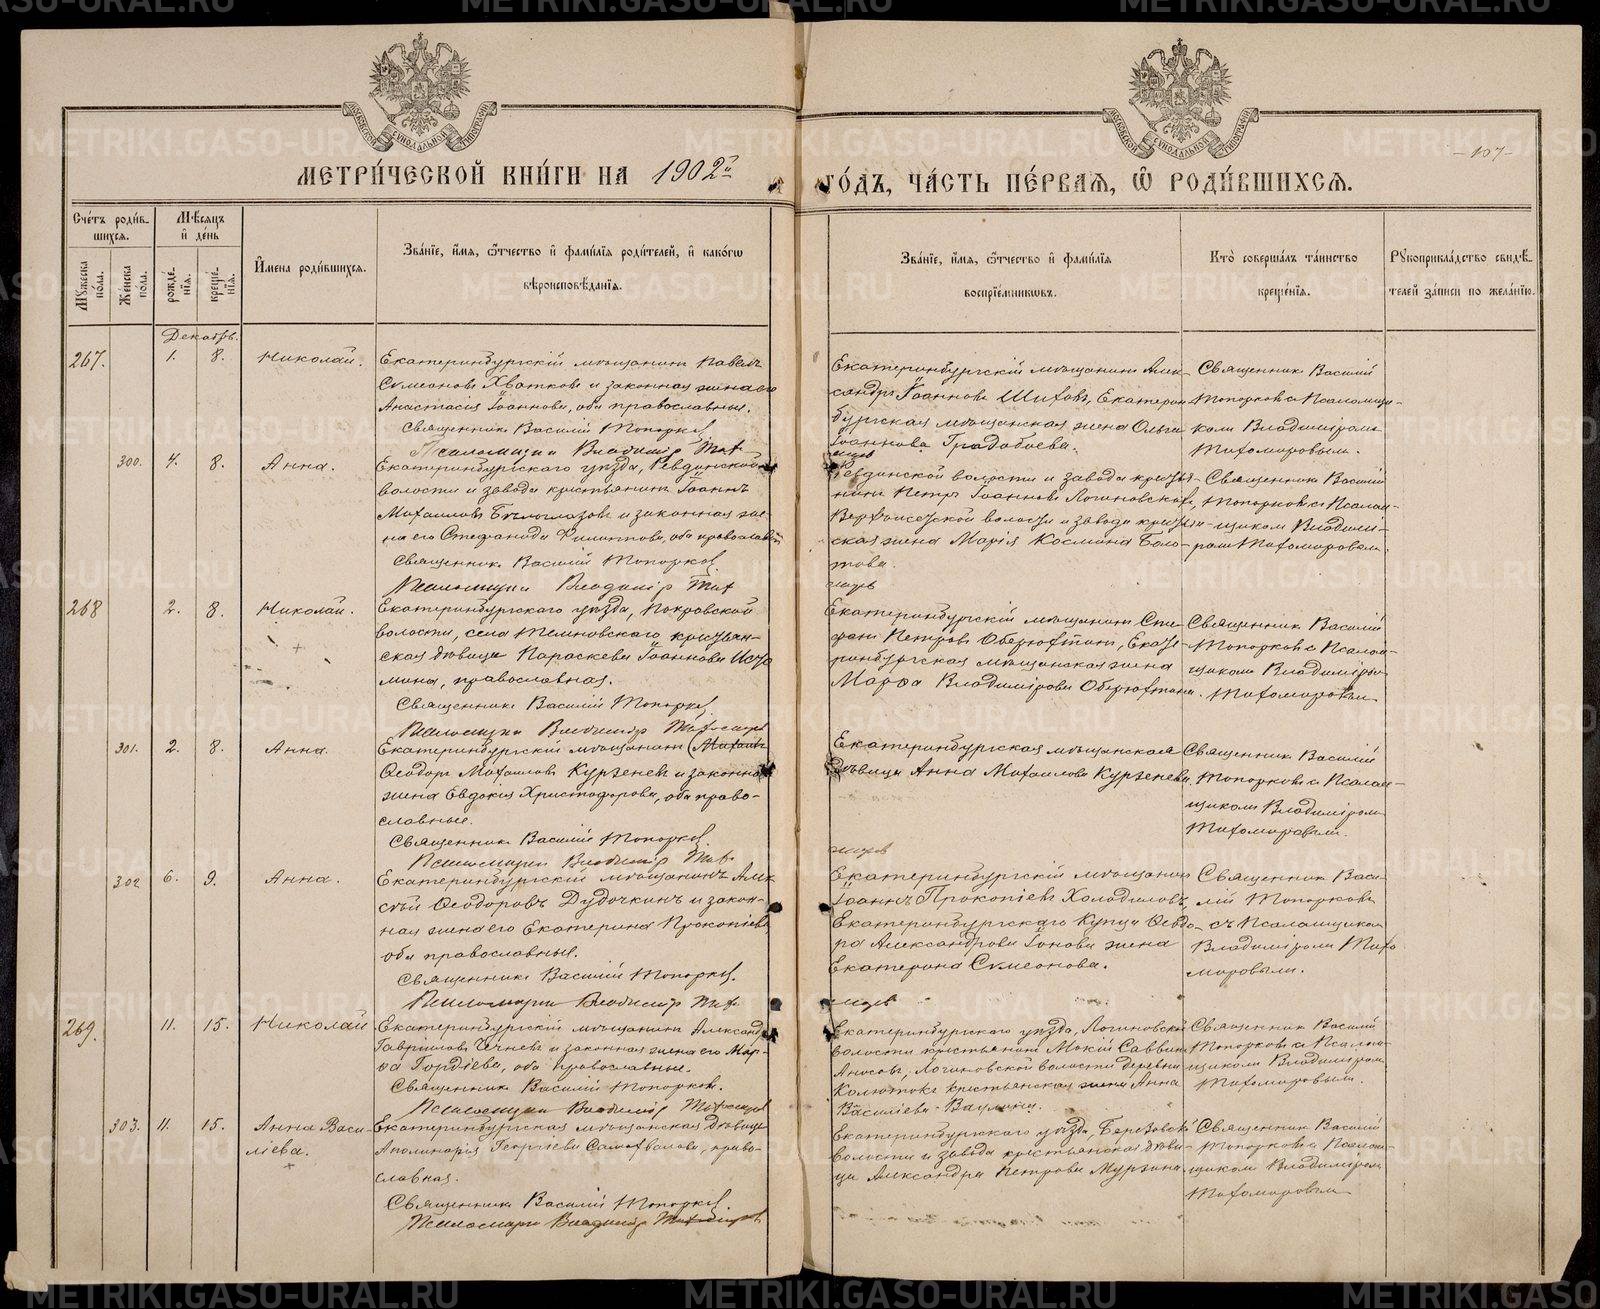 МЕТРИ́ЧЕСКОЙ КНИ́ГИ НА 1902й ГО́ДЪ, ЧА́СТЬ ПЕ́РВАЯ, Ѿ РОДИ́ВШИХСЯ.
-107-
МОСКОВСКОЙ СѴНОДАЛЬНОЙ ТИПОГРАФІИ
Сче́тъ роди́в-
шихся.
Мѣ́сяцъ
и҆ де́нь
Мꙋ́жеска по́ла.
Же́нска по́ла.
рожде́-
нїя.
креще́-
нїя.
И҆мена роди́вшихся.
Зва́нїе, и҆́мя, ѻ҆́тчество и҆ фами́лїя роди́телей, и҆ како́гѡ
вѣроисповѣ́данїя.
Зва́нїе, и҆́мя, ѻ҆́тчество и҆ фами́лїя
воспрїе́мникѡвъ.
Кто̀ соверша́лъ та́инство
креще́нїя.
Рꙋкоприкла́дство свидѣ́-
телей за́писи по жела́нїю.
Декабрь.
267.
1.
8.
Николай.
Екатеринбургскій мѣщанинъ Павелъ
Сѵмеоновъ Хватковъ и законная жена его
Анастасія Іоаннова, оба православные.
Священникъ Василій Топорковъ
Псаломщикъ Владиміръ Тих-
Екатеринбургскій мѣщанинъ Алек-
сандръ Іоанновъ Шиховъ, Екатерин-
бургская мѣщанская жена Ольга
Іоаннова Градобоева.
Священникъ Василій
Топорковъ с Псаломщи-
комъ Владиміромъ
Тихомировымъ.
300.
4.
8.
Анна.
Екатеринбургскаго уѣзда, Ревдинской
волости и завода крестьянинъ Іоаннъ
Михаиловъ Бѣлоглазовъ и законная же-
на его Стефанида Филиппова, оба православн
Священникъ Василій Топорковъ.
Псаломщикъ Владиміръ Тих
Ревдинской волости и завода крестья-
нинъ Петръ Іоанновъ Логиновскихъ,
волости и завода крестьян-
ская жена Марія Космина Боло-
това.
Священникъ Василій
Топорковъ с Псалом-
щикомъ Владими-
ромъ Тихомировымъ.
268
2.
8.
Николай.
Екатеринбургскаго уѣзда, Покровской
волости, села Темновскаго крестьян-
ская дѣвица Параскева Іоаннова
мина, православная.
Священникъ Василій Топорковъ
Псаломщикъ Владиміръ Тихомировъ
Екатеринбургскій мѣщанинъ Сте-
фанъ Петровъ Оберюхтинъ, Екате-
ринбургская мѣщанская жена
Марѳа Владимірова Оберюхтина.
Священникъ Василій
Топорковъ с Псалом-
щикомъ Владиміромъ
Тихомировымъ
301.
2.
8.
Анна.
Екатеринбургскій мѣщанинъ (Михаилъ
Ѳеодоръ Михаиловъ Курзеневъ и законна
жена Евдокія Христофорова, оба право-
славные.
Священникъ Василій Топорковъ.
Псаломщикъ Владиміръ Тих
Екатеринбургская мѣщанская
дѣвица Анна Михаилова Курзенева.
Священникъ Василій
Топорковъ с Псалом-
щикомъ Владиміромъ
Тихомировымъ.
302
6.
9.
Анна.
Екатеринбургскій мѣщанинъ Алек
сѣй Ѳеодоровъ Дудочкинъ и закон-
ная жена его Екатерина Прокопіева
оба православные.
Священникъ Василій Топорковъ.
Псаломщикъ Владиміръ Тих
Екатеринбургскій мѣщанинъ
Іоаннъ Прокопіевъ Холодиловъ,
Екатеринбургскаго купца Ѳеодо-
ра Александрова Іонова жена
Екатерина Сѵмеонова.
Священникъ Васи-
лій Топорковъ
съ Псаломщикомъ
Владиміромъ Тихо
мировымъ.
269.
11.
15.
Николай
Екатеринбургскій мѣщанинъ Александръ
Гавріиловъ и законная жена его Мар-
ѳа Гордіева, оба православные.
Священникъ Василій Топорковъ.
Псаломщикъ Владиміръ Тихомировъ
Екатеринбургскаго уѣзда, Логиновской
волости крестьянинъ Мокій Саввинъ
Аносовъ, Логиновской волости деревни
Колюткс крестьянская жена Анна
Василіева Ваулина.
Священникъ Василій
Топорковъ с Псалом-
щикомъ Владиміромъ
Тихомировымъ.
303.
11.
15.
Анна Васи-
ліева.
Екатеринбургская мѣщанская дѣвица
Аполинарія Георгіева Самохвалова, право-
славная.
Священникъ Василій Топорковъ.
Псаломщикъ Владиміръ Тихомировъ
Екатеринбургскаго уѣзда, Березовск
волости и завода крестьянская дѣви-
ца Александра Петрова Мурзина.
Священникъ Василій
Топорковъ с Псалом-
щикомъ Владиміромъ
Тихомировымъ
METRIKI.GASO-URAL.RU